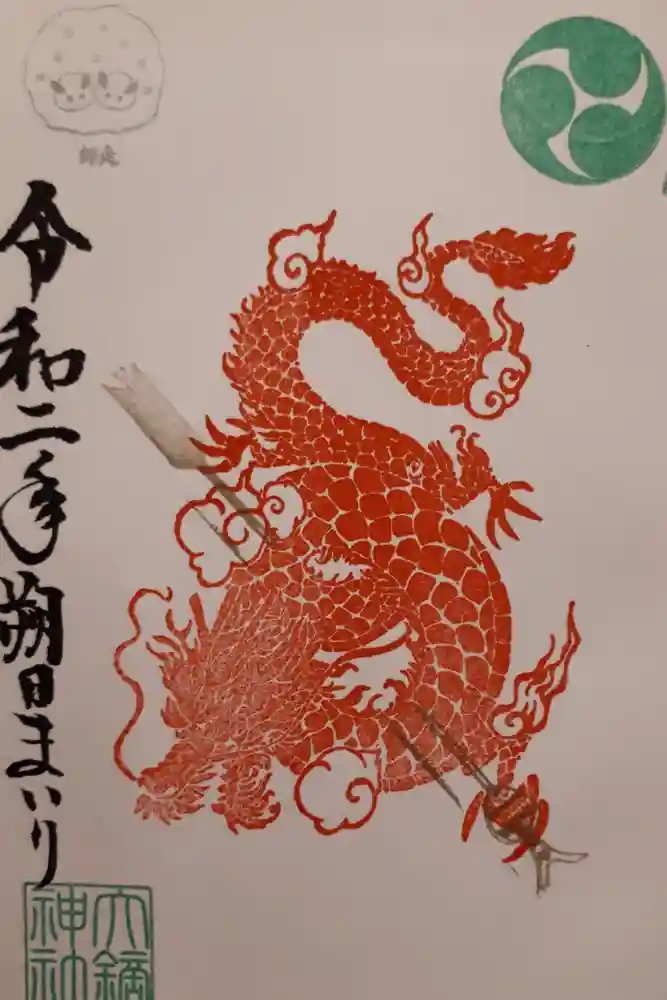 令和二年朔日まいり
六鏑
神社